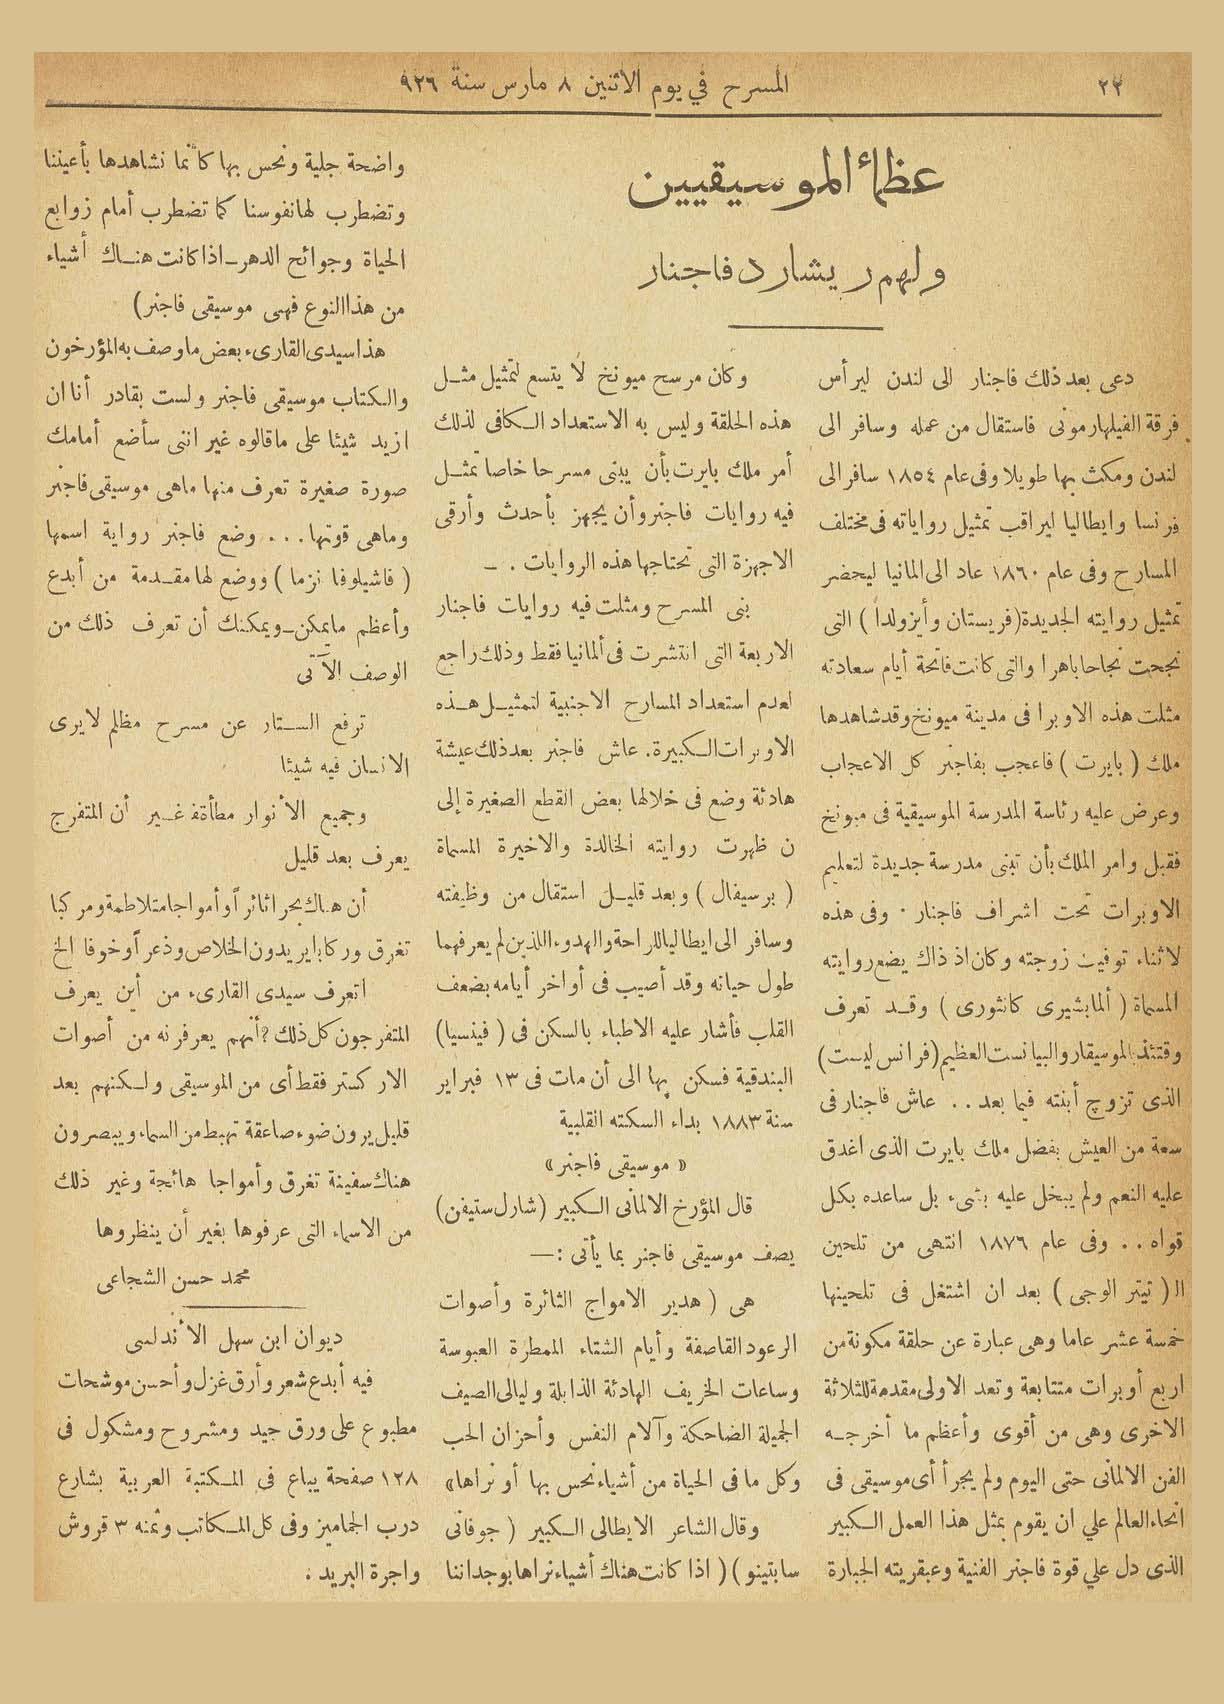 ٢٢
المسرح في يوم الاثنين ٨ مارس سنة ٩٢٦
عظماء الموسيقيين
ولهم ريشارد فاجنار
دعى بعد ذلك فاجنار الى لندن ليرأس
فرقة الفيلهارمونى فاستقال من عمله وسافر الى
لندن ومكث بها طويلا وفى عام ١٨٥٤ سافر الى
فرنسا وايطاليا ليراقب تمثيل رواياته فى مختلف
المسارح وفى عام ١٨٦٠ عاد الى المانيا ليحضر
تمثيل روايته الجديدة (فريستان وأيزولدا) التى
نجحت نجاحا باهرا والتى كانت فاتحة أيام سعادته
مثلت هذه الاوبرا فى مدينة ميونخ وقد شاهدها
ملك (بايرت) فاعجب بفاجنر كل الاعجاب
وعرض عليه رئاسة المدرسة الموسيقية فى ميونخ
فقبل وامر الملك بأن تبنى مدرسة جديدة لتعليم
الاوبرات تحت اشراف فاجنار . وفى هذه
لاثناء توفيت زوجته وكان اذ ذاك يضع روايته
المسماة (ألمابشيرى كانثورى) وقد تعرف
وقتئذ بالموسيقار والبيانست العظيم (فرانس ليست)
الذى تزوج أبنته فيما بعد .. عاش فاجنار فى
سعة من العيش بفضل ملك بايرت الذى اغدق
عليه النعم ولم يبخل عليه بشىء بل ساعده بكل
قواه .. وفى عام ١٨٧٦ انتهى من تلحين
الـ (تيتر الوجى) بعد ان اشتغل فى تلحينها
خمسة عشر عاما وهى عبارة عن حلقة مكونة من
اربع أوبرات متتابعة وتعد الاولى مقدمة للثلاثة
الاخرى وهى من أقوى وأعظم ما أخرجه
الفن الالمانى حتى اليوم ولم يجرأ أى موسيقى فى
انحاء العالم علي ان يقوم بمثل هذا العمل الكبير
الذى دل علي قوة فاجنر الفنية وعبقريته الجبارة
وكان مرسح ميونخ لا يتسع لتمثيل مثل
هذه الحلقة وليس به الاستعداد الكافى لذلك
أمر ملك بايرت بأن يبنى مسرحا خاصا تمثل
فيه روايات فاجنر وأن يجهز بأحدث وأرقى
الاجهزة التى تحتاجها هذه الروايات . –
بنى المسرح ومثلت فيه روايات فاجنار
الاربعة التى انتشرت فى ألمانيا فقط وذلك راجع
لعدم استعداد المسارح الاجنبية لتمثيل هذه
الاوبرات الكبيرة. عاش فاجنر بعد ذلك عيشة
هادئة وضع فى خلالها بعض القطع الصغيرة إلى
ن ظهرت روايته الخالدة والاخيرة المسماة
(برسيفال) وبعد قليل استقال من وظيفته
وسافر الى ايطاليا للراحة والهدوء اللذين لم يعرفهما
طول حياته وقد أصيب فى أواخر أيامه بضعف
القلب فأشار عليه الاطباء بالسكن فى (فينسيا)
البندقية فسكن بها الى أن مات فى ١٣ فبراير
سنة ١٨٨٣ بداء السكته القلبية
« موسيقى فاجنر »
قال المؤرخ الالمانى الكبير (شارل ستيفن)
يصف موسيقى فاجنر بما يأتى :—
هى (هدير الامواج الثائرة وأصوات
الرعود القاصفة وأيام الشتاء الممطرة العبوسة
وساعات الخريف الهادئة الذابلة وليالى الصيف
الجميلة الضاحكة وآلام النفس وأحزان الحب
وكل ما فى الحياة من أشياء نحس بها أو نراها»
وقال الشاعر الايطالى الكبير (جوفانى
سابتينو) (اذا كانت هناك أشياء نراها بوجداننا
واضحة جلية ونحس بها كأنما نشاهدها بأعيننا
وتضطرب لها نفوسنا كما تضطرب أمام زوابع
الحياة وجوائح الدهر – اذا كانت هناك أشياء
من هذا النوع فهى موسيقى فاجنر)
هذا سيدى القارىء بعض ما وصف به المؤرخون
والكتاب موسيقى فاجنر ولست بقادر أنا ان
ازيد شيئا على ما قالوه غير اننى سأضع أمامك
صورة صغيرة تعرف منها ماهى موسيقى فاجنر
وماهى قوتها ... وضع فاجنر رواية اسمها
(فاشيلوفا نزما) ووضع لها مقدمة من أبدع
وأعظم ما يمكن – ويمكنك أن تعرف ذلك من
الوصف الآتى
ترفع الستار عن مسرح مظلم لا يرى
الانسان فيه شيئا
وجميع الأنوار مطأة فغير أن المتفرج
يعرف بعد قليل
أن هناك بحراً ثائراً وأمواجا متلاطمة ومركبا
تغرق وركابا يريدون الخلاص وذعراً وخوفا الخ
اتعرف سيدى القارىء من أين يعرف
المتفرجون كل ذلك؟ أنهم يعرفرنه من أصوات
الاركستر فقط أى من الموسيقى ولكنهم بعد
قليل يرون ضوء صاعقة تهبط من السماء ويبصرون
هناك سفينة تغرق وأمواجا هائجة وغير ذلك
من الاسماء التى عرفوها بغير أن ينظروها
محمد حسن الشجاعى
ديوان ابن سهل الأندلسى
فيه أبدع شعر وأرق غزل وأحسن موشحات
مطبوع على ورق جيد ومشروح ومشكول فى
١٢٨ صفحة يباع فى المكتبة العربية بشارع
درب الجماميز وفى كل المكاتب وثمنه ٣ قروش
واجرة البريد .